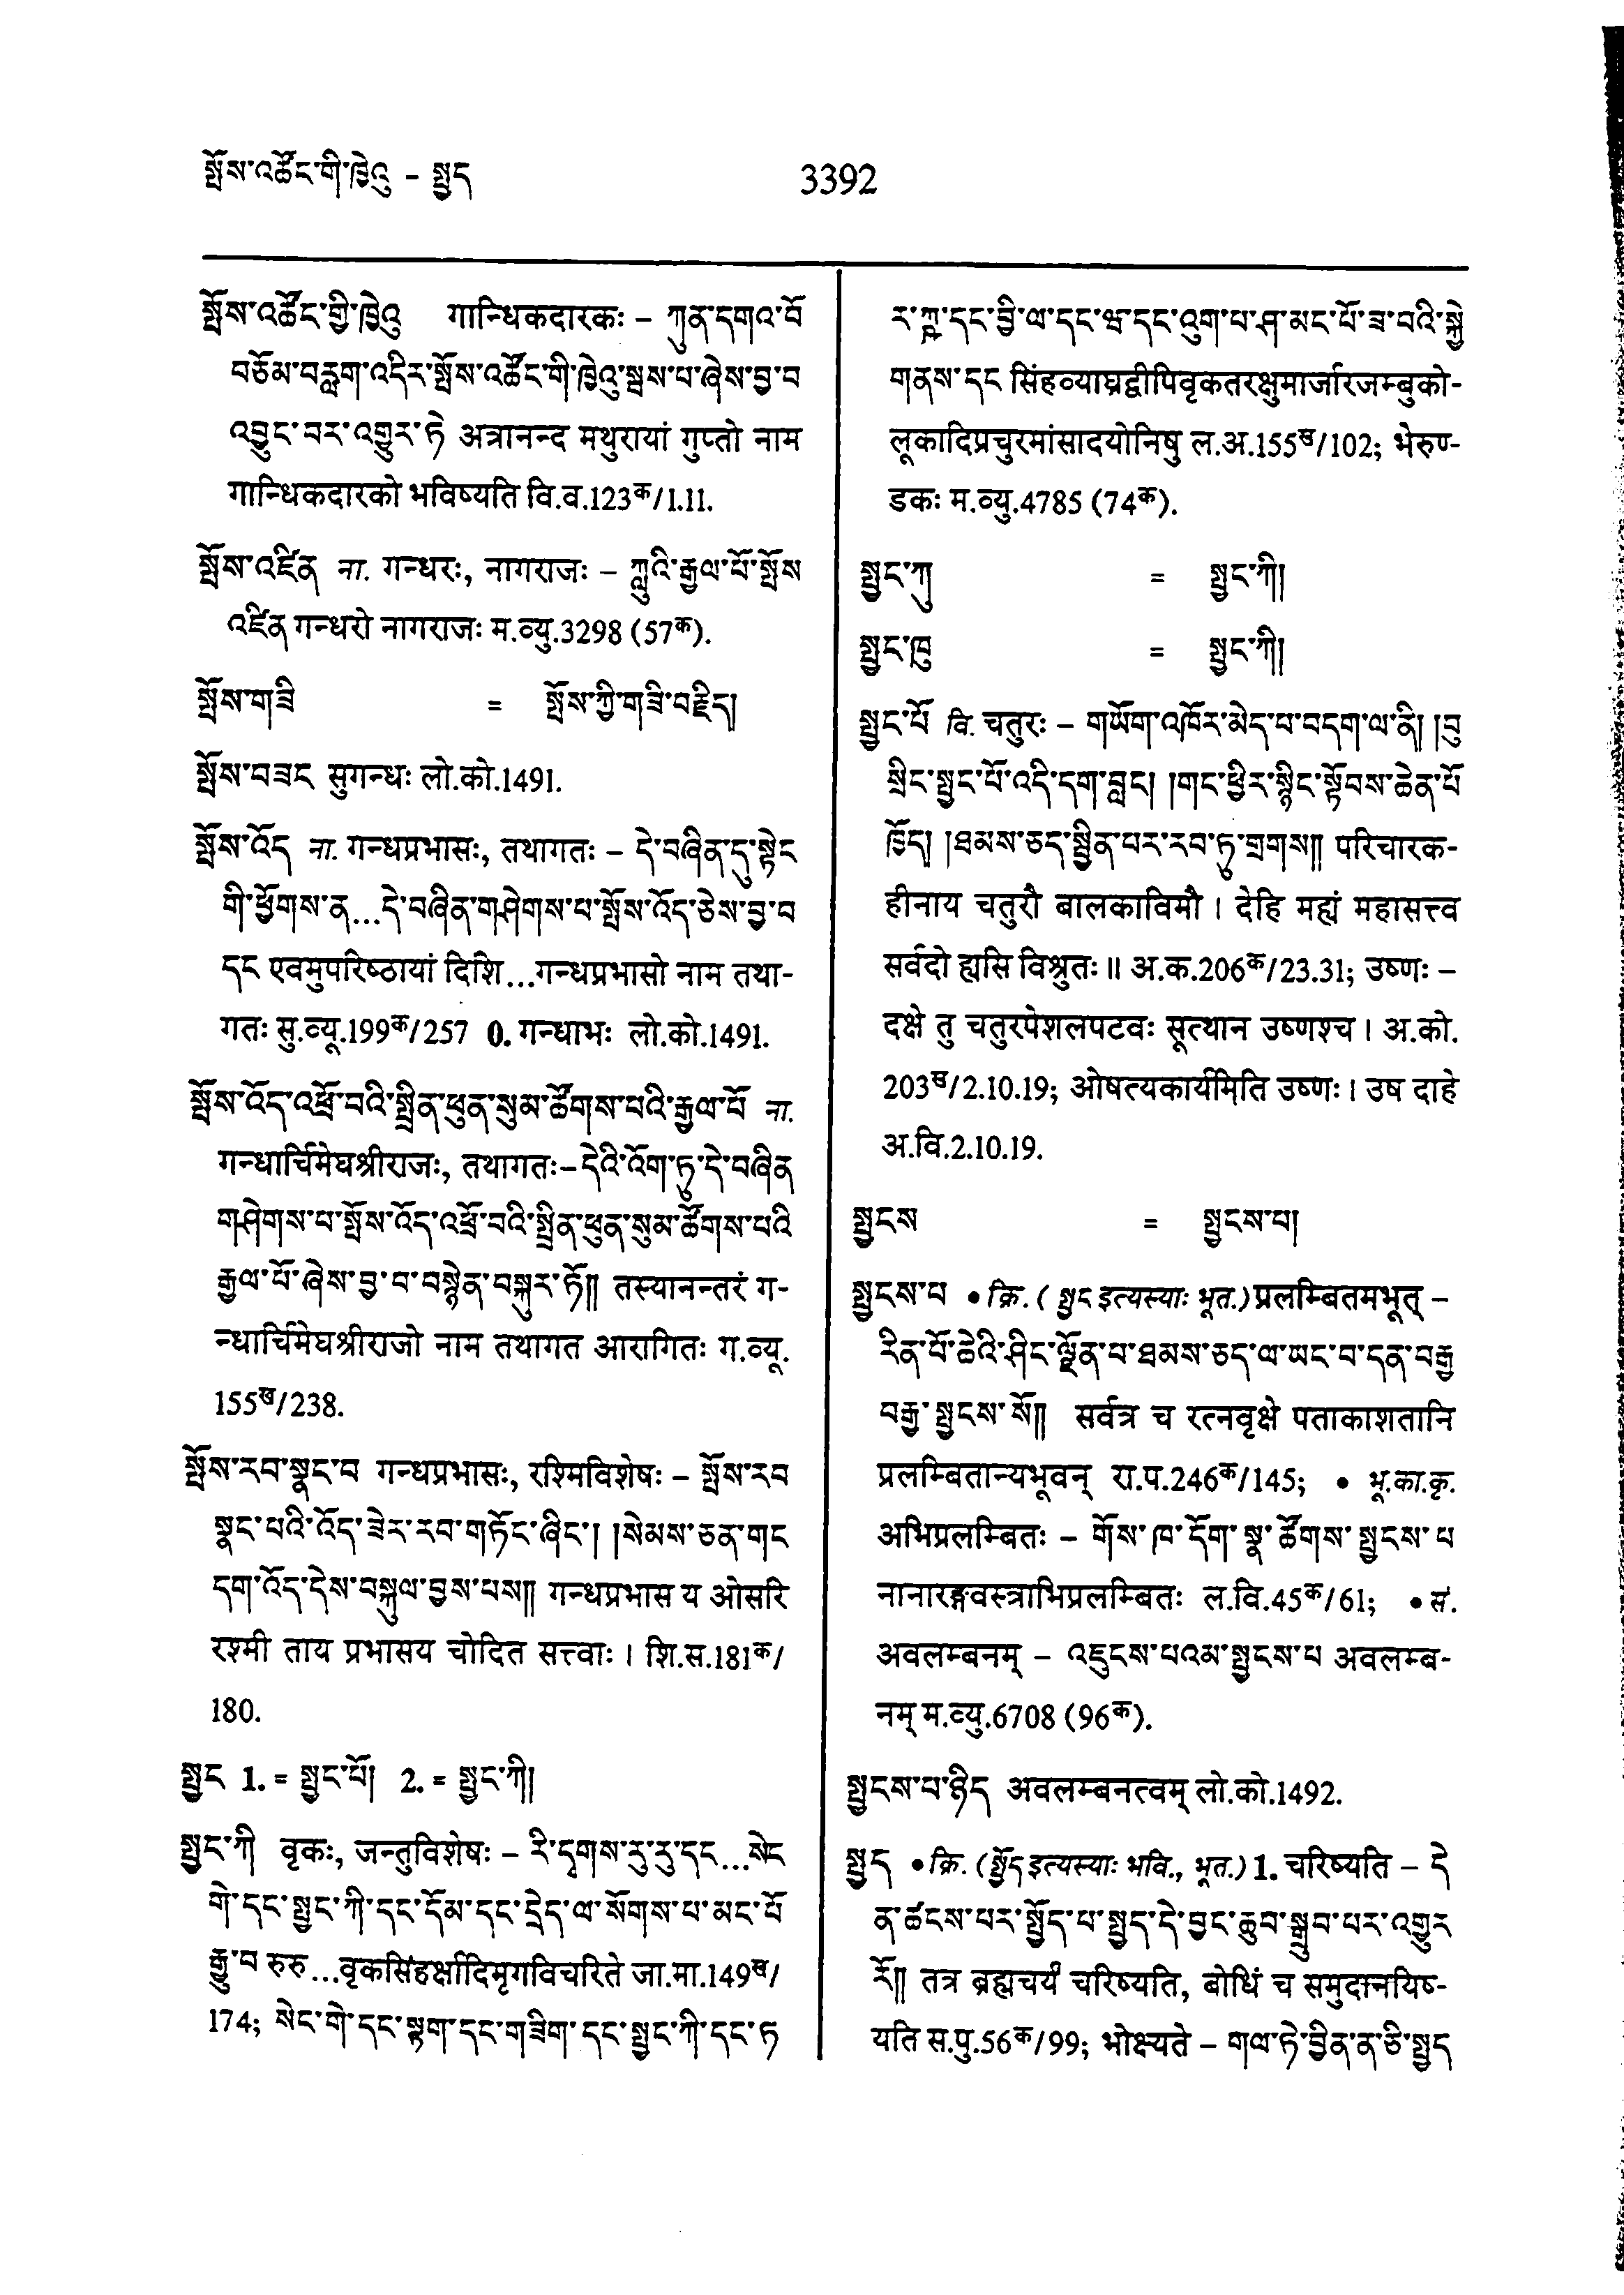 སྤོས་འཚོང་གི་ཁྱེའུ – སྤྱད
3392
སྤོས་འཚོང་གྱི་ཁྱེའུ गान्धिकदारकः – ཀུན་དགའ་བོ
བཅོམ་བརླག་འདིར་སྤོས་འཚོང་གི་ཁྱེའུ་སྦས་པ་ཞེས་བྱ་བ
འབྱུང་བར་འགྱུར་ཏེ अत्रानन्द मथुरायां गुप्तो नाम
गान्धिकदारको भविष्यति वि.व.123क/1.11.
སྤོས་འཛིན ना. गन्धरः, नागराजः – ཀླུའི་རྒྱལ་པོ་སྤོས
འཛིན गन्धरो नागराजः म.व्यु.3298 (57क).
སྤོས་གཟི = སྤོས་ཀྱི་གཟི་བརྗིད།
སྤོས་བཟང सुगन्धः लो.को.1491.
སྤོས་འོད ना. गन्धप्रभासः, तथागतः – དེ་བཞིན་དུ་སྟེང
གི་ཕྱོགས་ན...དེ་བཞིན་གཤེགས་པ་སྤོས་འོད་ཅེས་བྱ་བ
དང एवमुपरिष्ठायां दिशि...गन्धप्रभासो नाम तथा-
गतः सु.व्यू.199क/257 0. गन्धाभः लो.को.1491.
སྤོས་འོད་འཕྲོ་བའི་སྤྲིན་ཕུན་སུམ་ཚོགས་པའི་རྒྱལ་པོ ना.
गन्धार्चिमेघश्रीराजः, तथागतः–དེའི་འོག་ཏུ་དེ་བཞིན
གཤེགས་པ་སྤོས་འོད་འཕྲོ་བའི་སྤྲིན་ཕུན་སུམ་ཚོགས་པའི
རྒྱལ་པོ་ཞེས་བྱ་བ་བསྙེན་བསྐུར་ཏོ།། तस्यानन्तरं ग-
न्धार्चिमेघश्रीराजो नाम तथागत आरागितः ग.व्यू.
155ख/238.
སྤོས་རབ་སྣང་བ गन्धप्रभासः, रश्मिविशेषः – སྤོས་རབ
སྣང་བའི་འོད་ཟེར་རབ་གཏོང་ཞིང་། །སེམས་ཅན་གང
དག་འོད་དེས་བསྐུལ་བྱས་པས།། गन्धप्रभास य ओसरि
रश्मी ताय प्रभासय चोदित सत्त्वाः । शि.स.181क/
180.
སྤྱང 1. = སྤྱང་པོ། 2. = སྤྱང་ཀི།
སྤྱང་ཀི वृकः, जन्तुविशेषः – རི་དྭགས་རུ་རུ་དང...སེང
གེ་དང་སྤྱང་ཀི་དང་དོམ་དང་དྲེད་ལ་སོགས་པ་མང་པོ
རྒྱུ་བ रुरु...वृकसिंहर्क्षादिमृगविचरिते जा.मा.149ख/
174; སེང་གེ་དང་སྟག་དང་གཟིག་དང་སྤྱང་ཀི་དང་ཏ
ར་ཀྵ་དང་བྱི་ལ་དང་ཝ་དང་འུག་པ་ཤ་མང་པོ་ཟ་བའི་སྐྱེ
གནས་དང सिंहव्याघ्रद्वीपिवृकतरक्षुमार्जारजम्बुको-
लूकादिप्रचुरमांसादयोनिषु ल.अ.155ख/102; भेरुण-
डकः म.व्यु.4785 (74क).
སྤྱང་ཀུ = སྤྱང་ཀི།
སྤྱང་ཁུ = སྤྱང་ཀི།
སྤྱང་པོ वि. चतुरः – གཡོག་འཁོར་མེད་པ་བདག་ལ་ནི། །བུ
སྲིང་སྤྱང་པོ་འདི་དག་བླང། །གང་ཕྱིར་སྙིང་སྟོབས་ཆེན་པོ
ཁྱོད། །ཐམས་ཅད་སྦྱིན་པར་རབ་ཏུ་གྲགས།། परिचारक-
हीनाय चतुरौ बालकाविमौ । देहि मह्यं महासत्त्व
सर्वदो ह्यसि विश्रुतः ॥ अ.क.206क/23.31; उष्णः –
दक्षे तु चतुरपेशलपटवः सूत्थान उष्णश्च । अ.को.
203ख/2.10.19; ओषत्यकार्यमिति उष्णः । उष दाहे
अ.वि.2.10.19.
སྤྱངས = སྤྱངས་པ།
སྤྱངས་པ • क्रि. ( སྤྱང इत्यस्याः भूत.) प्रलम्बितमभूत् –
རིན་པོ་ཆེའི་ཤིང་ལྗོན་པ་ཐམས་ཅད་ལ་ཡང་བ་དན་བརྒྱ
བརྒྱ་སྤྱངས་སོ།། सर्वत्र च रत्नवृक्षे पताकाशतानि
प्रलम्बितान्यभूवन् रा.प.246क/145; • भू.का.कृ.
अभिप्रलम्बितः – གོས་ཁ་དོག་སྣ་ཚོགས་སྤྱངས་པ
नानारङ्गवस्त्राभिप्रलम्बितः ल.वि.45क/61; • सं.
अवलम्बनम् – འཇུངས་པའམ་སྤྱངས་པ अवलम्ब-
नम् म.व्यु.6708 (96क).
སྤྱངས་པ་ཉིད अवलम्बनत्वम् लो.को.1492.
སྤྱད • क्रि. (སྤྱོད इत्यस्याः भवि., भूत.) 1. चरिष्यति – དེ
ན་ཚངས་པར་སྤྱོད་པ་སྤྱད་དེ་བྱང་ཆུབ་སྒྲུབ་པར་འགྱུར
རོ།། तत्र ब्रह्मचर्यं चरिष्यति, बोधिं च समुदानयिष-
यति स.पु.56क/99; भोक्ष्यते – གལ་ཏེ་བྱིན་ན་ཅི་སྤྱད